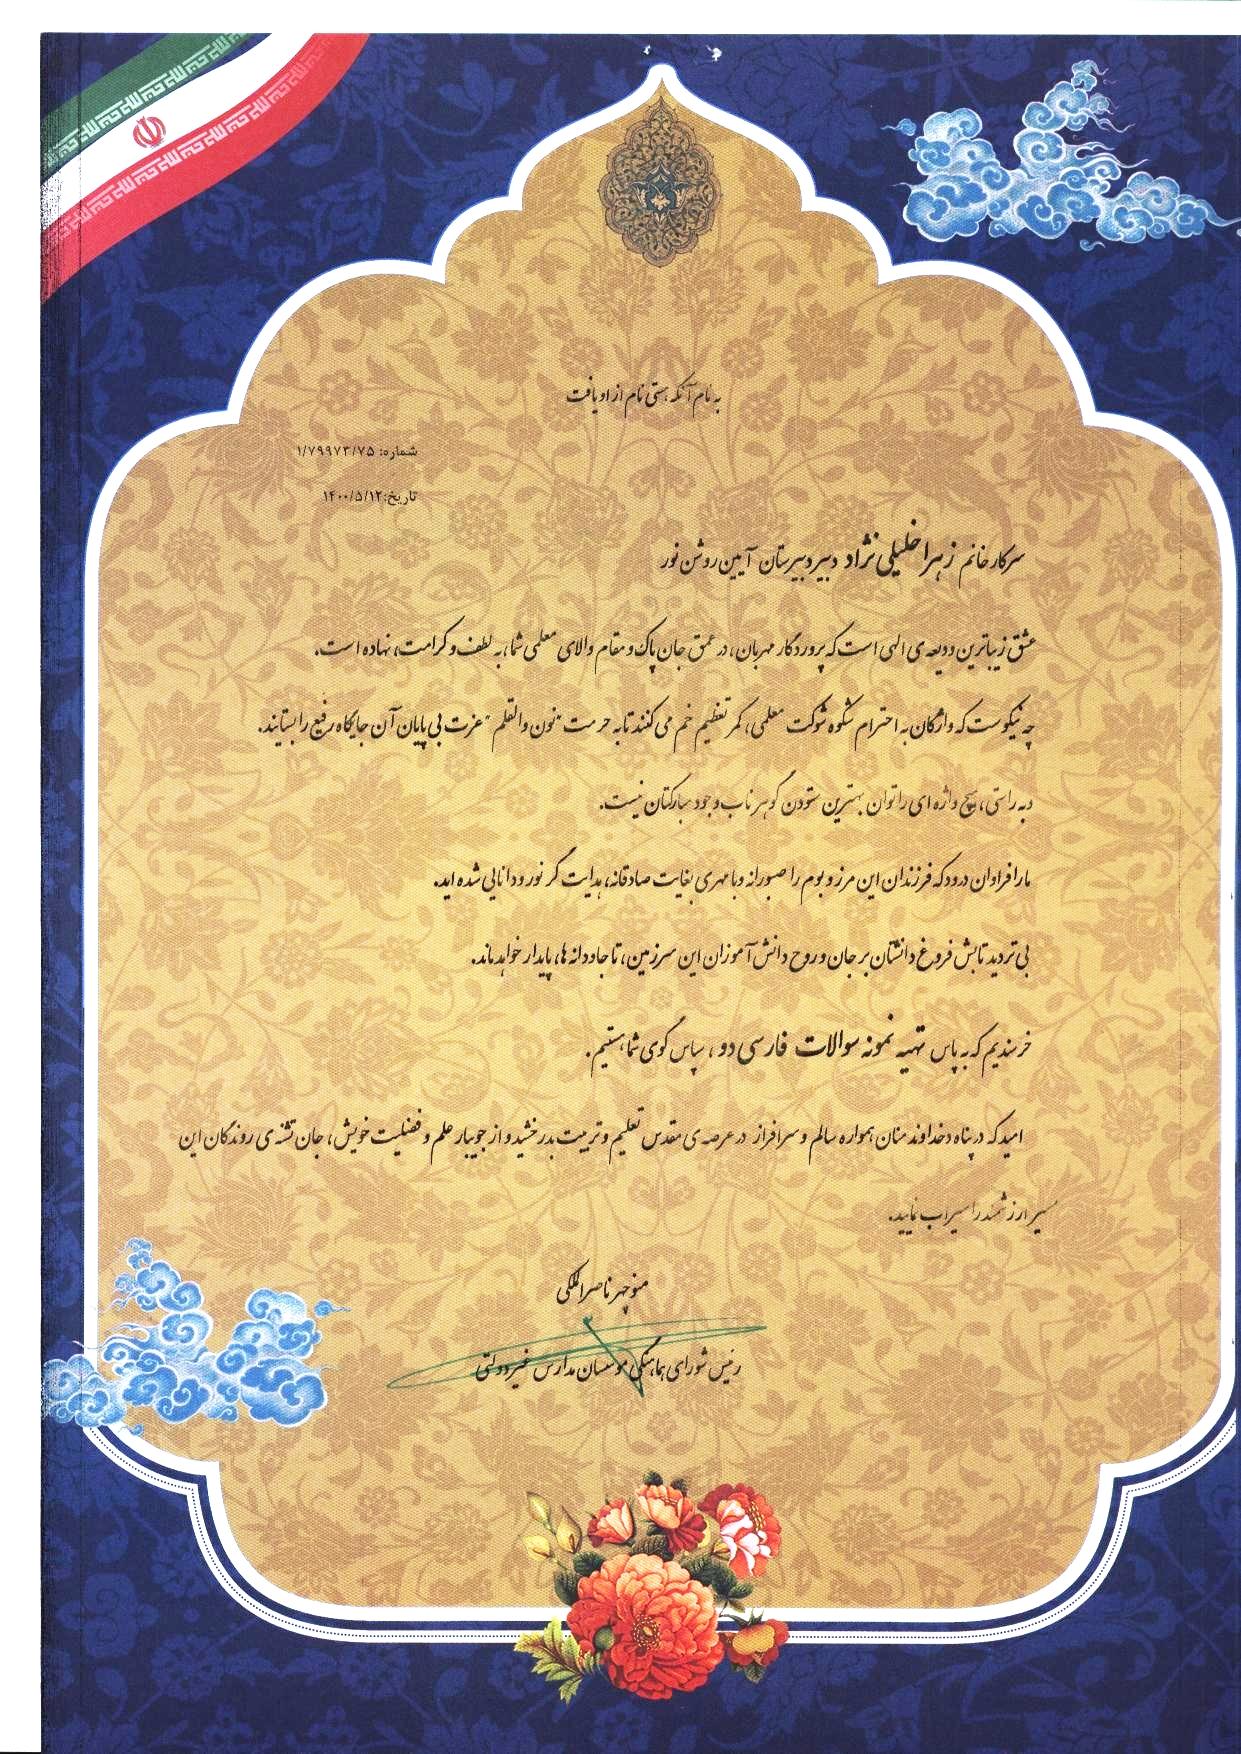 به نام آنکه هستی نام از او یافت
شماره: ۱/۷۹۹۷۳/۷۵
تاریخ:۱۴۰۰/۵/۱۲
سرکار خانم زهرا خلیلی نژاد دبیر دبیرستان آیین روشن نور
عشق زیباترین ودیعه ی الهی است که پروردگار مهربان، در عمق جان پاک و مقام والای معلمی شما، به لطف و کرامت، نهاده است.
چه نیکوست که واژگان به احترام شکوه شوکت معلمی، کمر تعظیم خم می کنند تا به حرمت "نون والقلم" عزت بی پایان آن جایگاه رفیع را بستایند.
و به راستی، هیچ واژه ای را توان بهترین ستودن گوهر ناب وجود مبارکتان نیست.
ما را فراوان درود که فرزندان این مرز و بوم را صبورانه و با مهری بغایت صادقانه، هدایت گر نور و دانایی شده اید.
بی تردید تابش فروغ دانشتان بر جان و روح دانش آموزان این سرزمین، تا جاودانه ها، پایدار خواهد ماند.
خرسندیم که به پاس تهیه نمونه سوالات فارسی دو، سپاس گوی شما هستیم.
امید که در پناه خداوند منان همواره سالم و سرافراز در عرصه ی مقدس تعلیم و تربیت بدرخشید و از جویبار علم و فضلیت خویش، جان تشنه ی روندگان این
مسیر ارزشمند را سیراب نمایید.
منوچهر ناصرالملکی
رئیس شورای هماهنگی موسسان مدارس غیردولتی